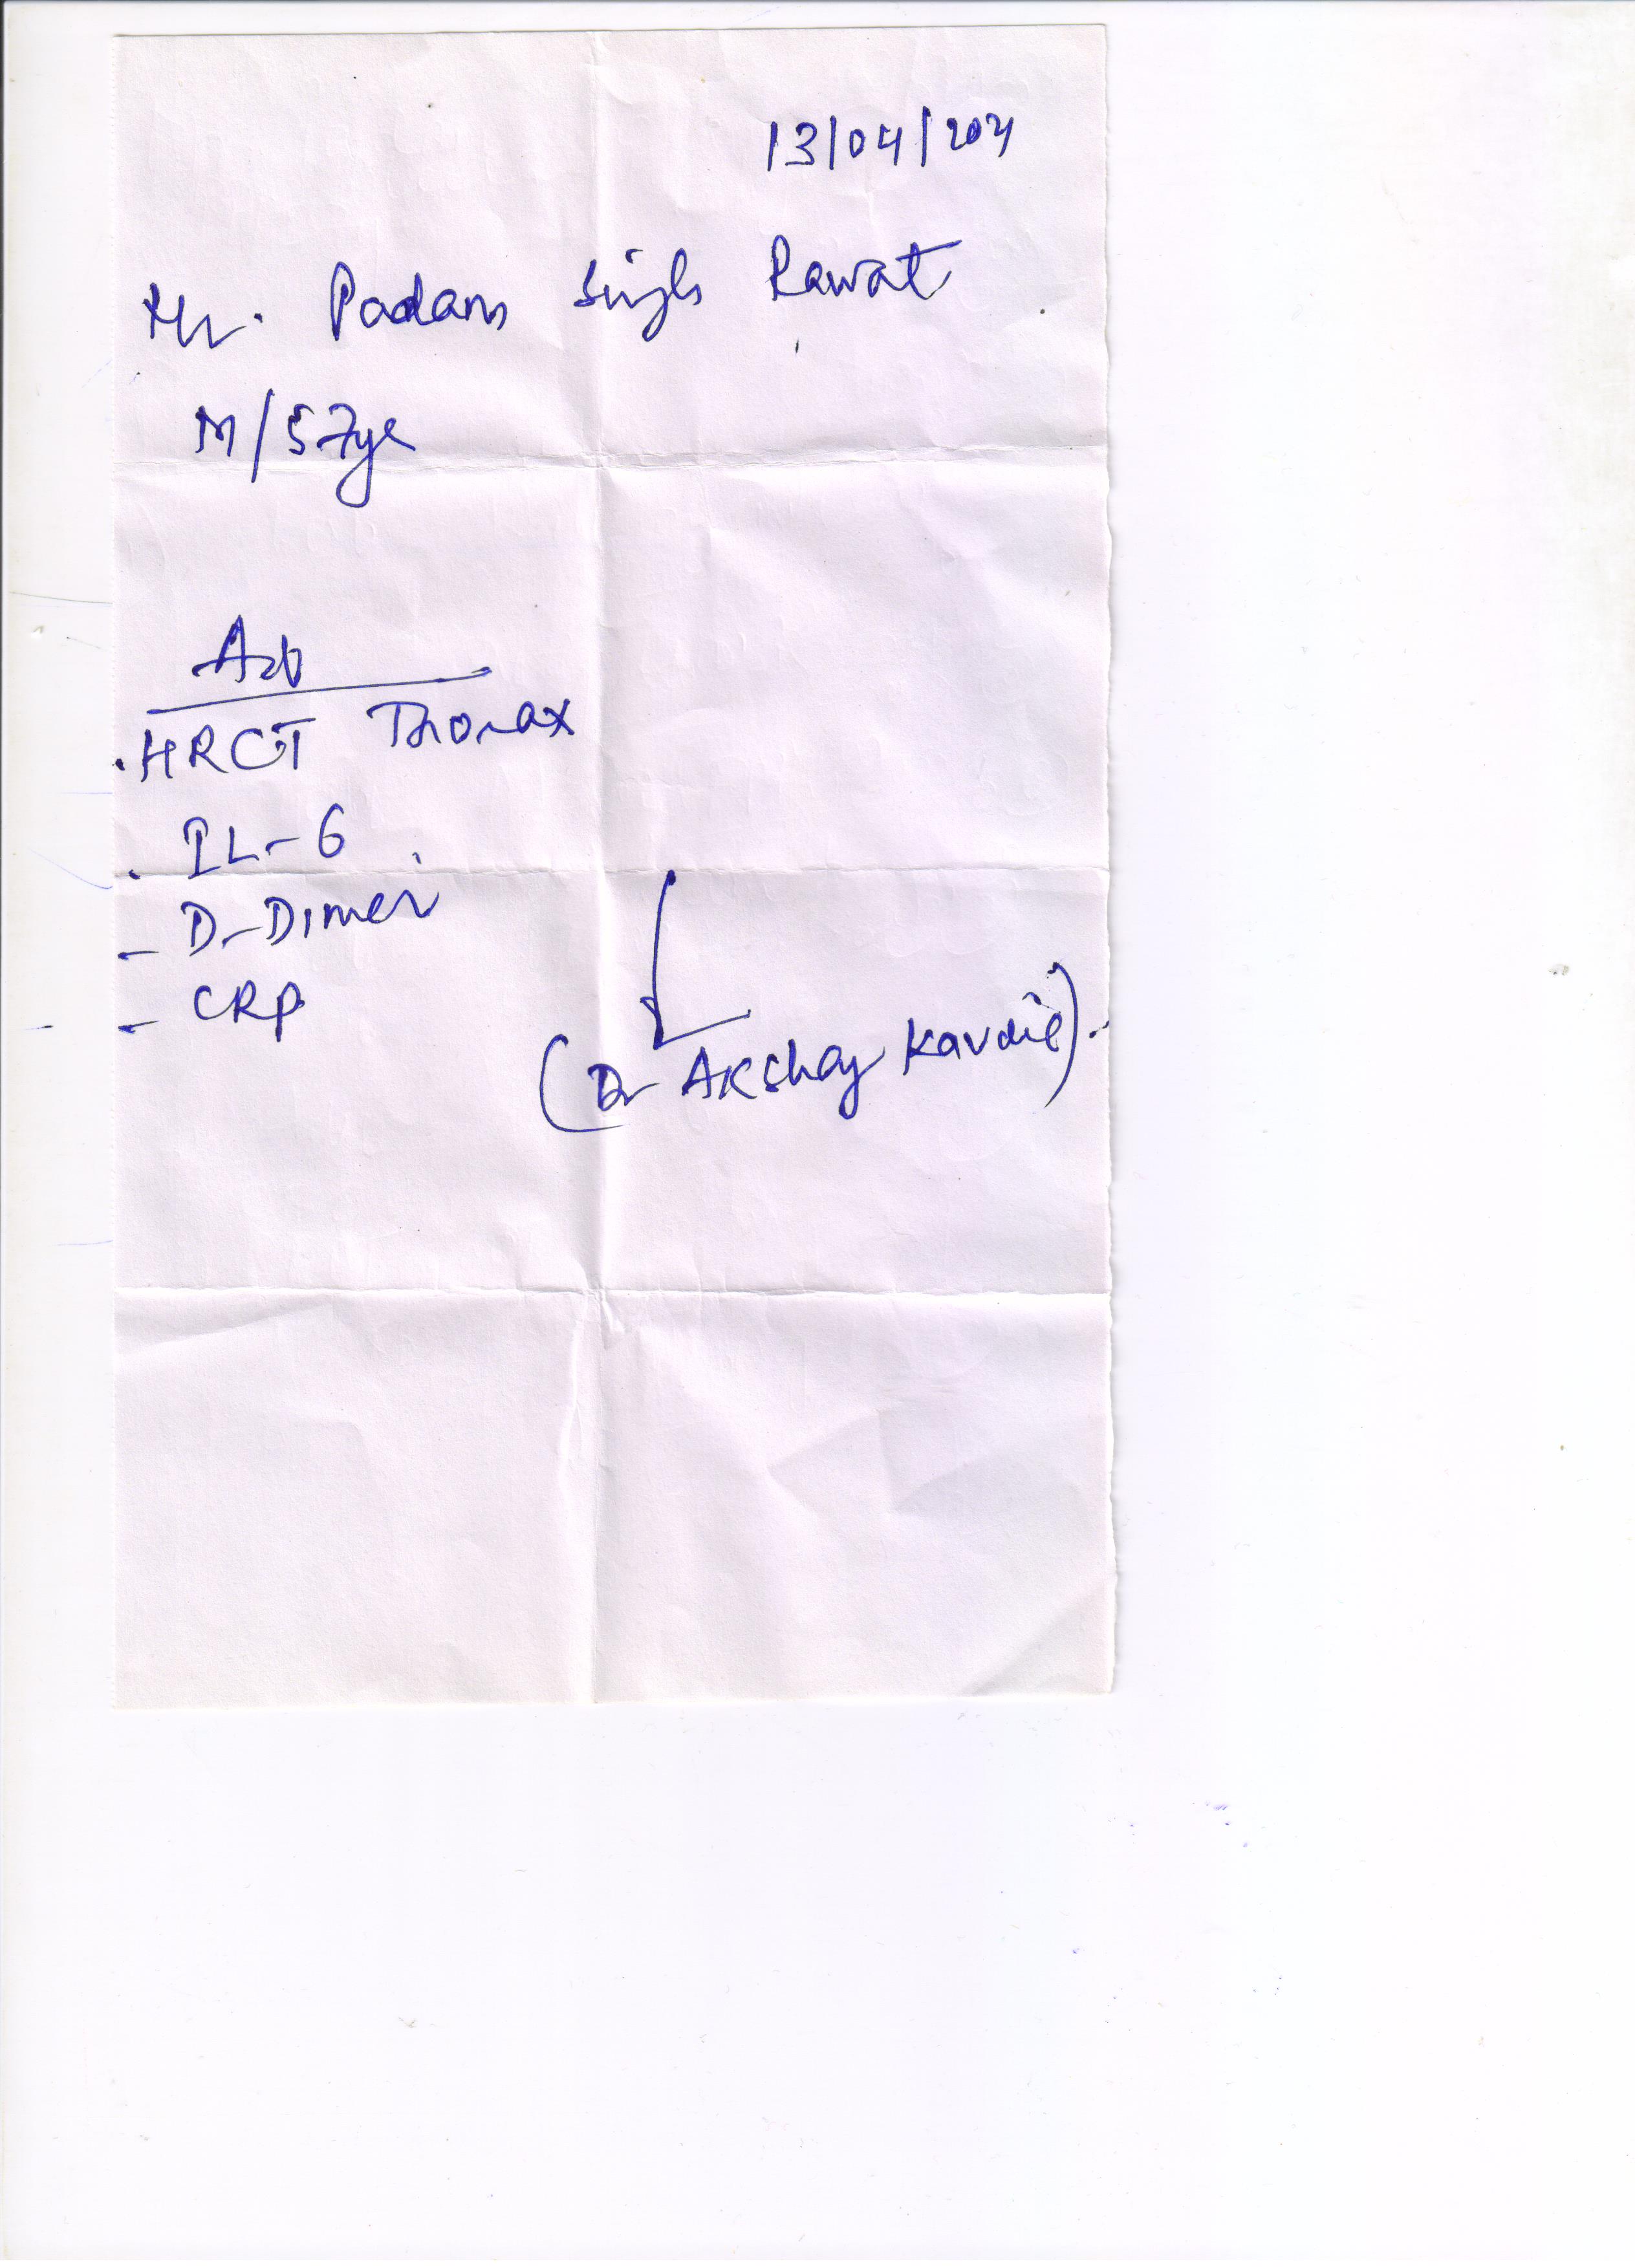 13/04/2021
Mr. Padam Singh Rawat
M/57yr
Adv
. HRCT Thorax
. IL-6
- D-Dimer
- CRP
(Dr Akshay Kavdie).